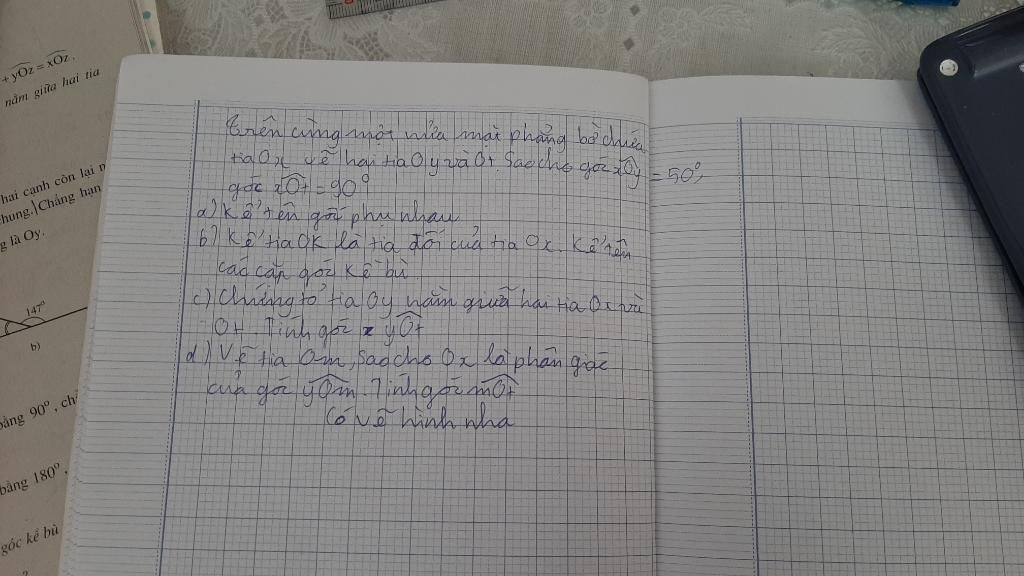 + yOz = xOz.
nằm giữa hai tia
hai cạnh còn lại n
hung. Chẳng hạn
g là Oy.
147°
b)
bằng 90°, chi
bằng 180°
góc kề bù
Trên cùng một nửa mặt phẳng bờ chứa
tia Ox vẽ hai tia Oy và Ot. Sao cho góc xOy = 50°,
góc xOt = 90°
a) Kể tên góc phụ nhau
b) Kẻ tia OK là tia đối của tia Ox. Kể tên
các cặp góc kề bù.
c) Chứng tỏ tia Oy nằm giữa hai tia Ox và
Ot. Tính góc yOt
d) Vẽ tia Om, sao cho Ox là phân giác
của góc yOm. Tính góc mOt
Có vẽ hình nha